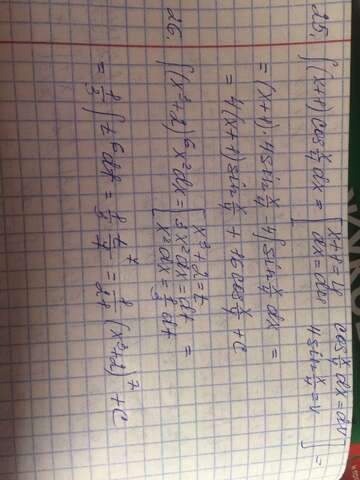 2б. ∫(x+1)cos x/4 dx = [x+1=u cos x/4 dx=dv
dx=du 4sin x/4=v] =
= (x+1)·4sin x/4 - ∫4sin x/4 dx =
= 4(x+1)sin x/4 + 16cos x/4 + C
2б. ∫(x³+2)⁶x²dx = [x³+2=t
3x²dx=dt
x²dx=1/3 dt] =
= 1/3 ∫t⁶dt = 1/3 t⁷/7 = 1/21 (x³+2)⁷ + C